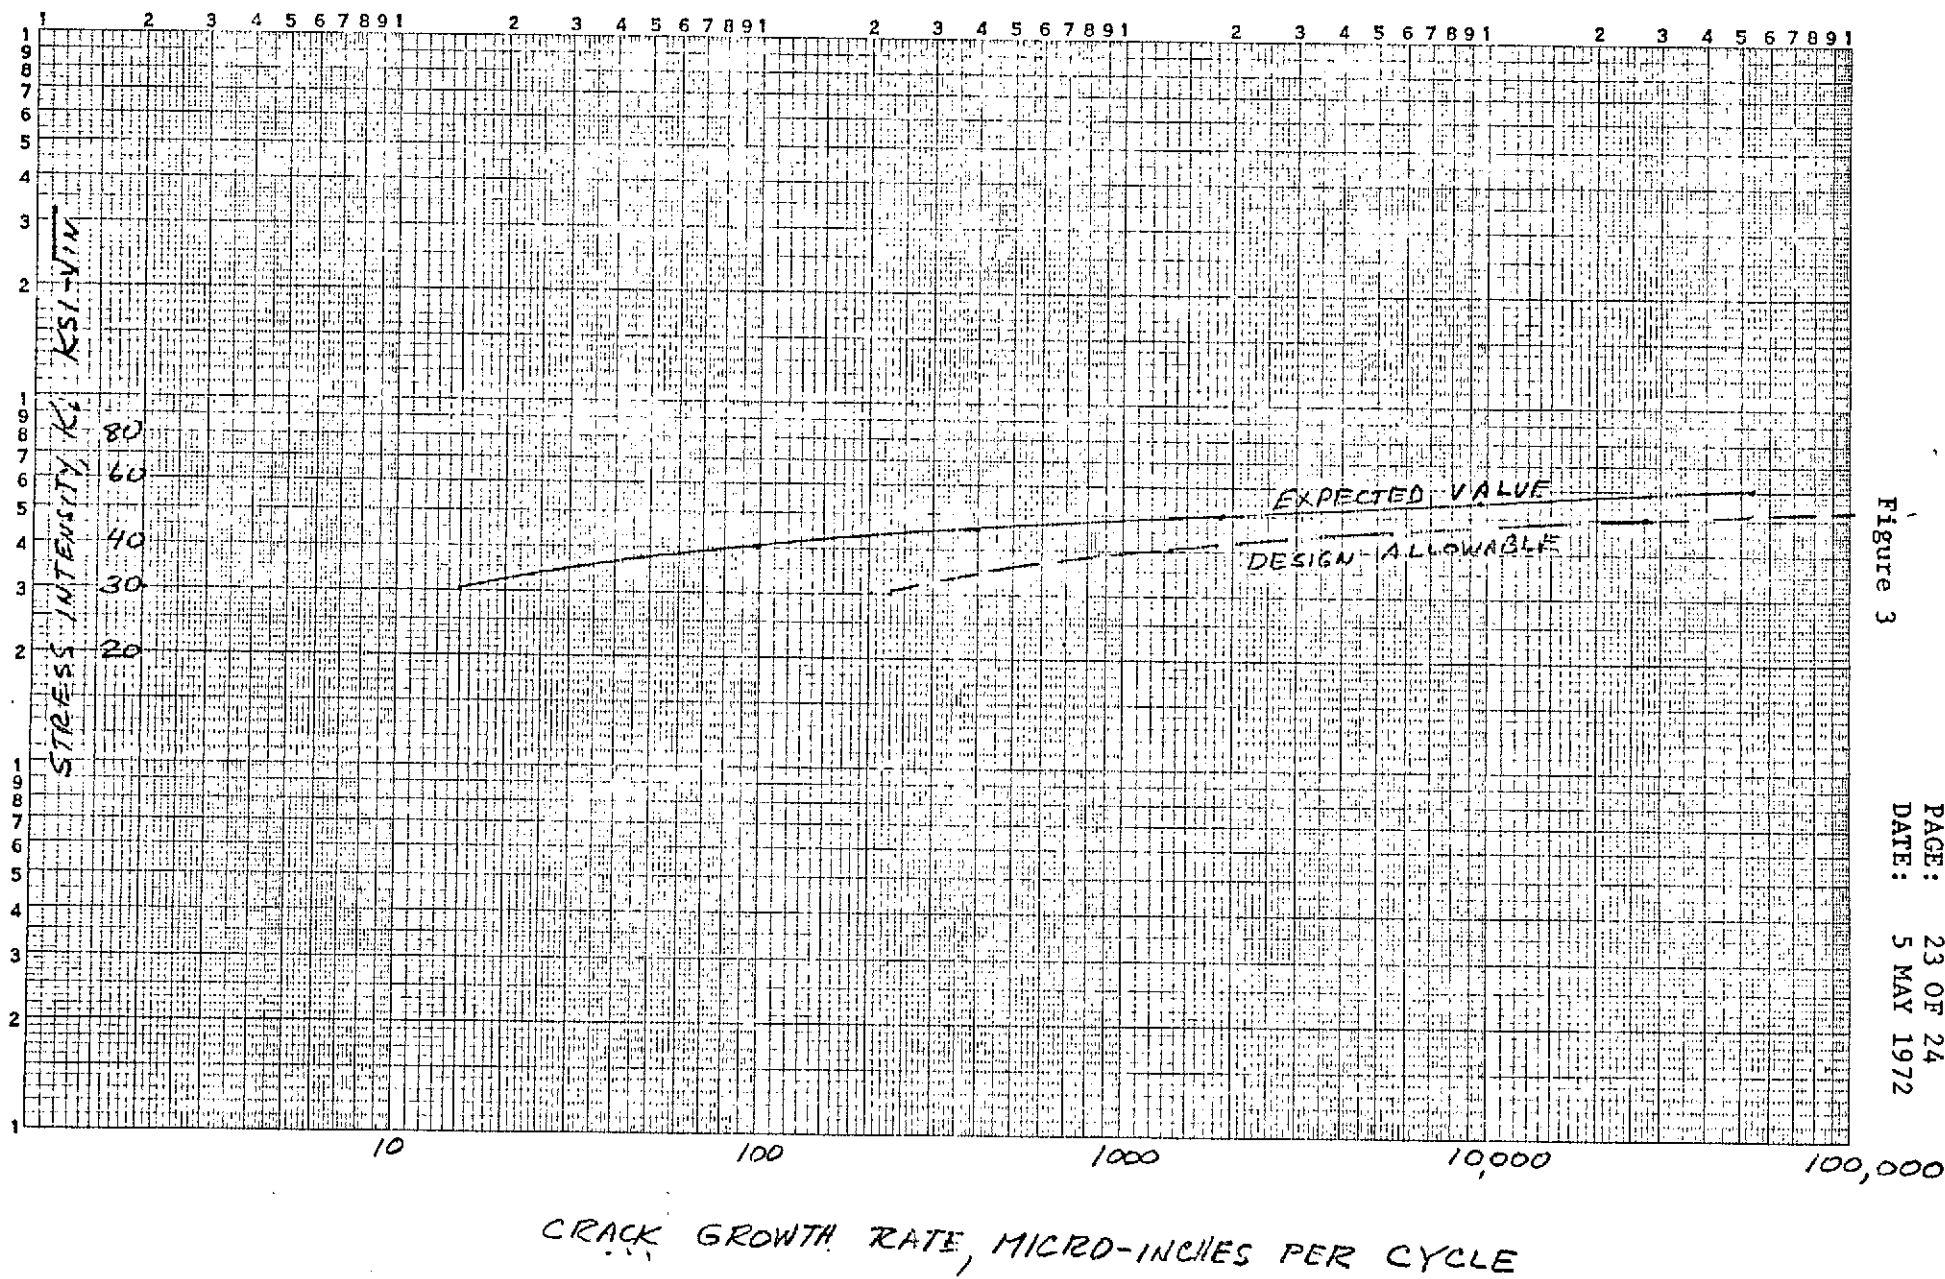 1 2 3 4 5 6 7 8 9 1 2 3 4 5 6 7 8 9 1 2 3 4 5 6 7 8 9 1 2 3 4 5 6 7 8 9 1 2 3 4 5 6 7 8 9 1
1
9
8
7
6
5
4
3
2
1
9
8
7
6
5
4
3
2
1
9
8
7
6
5
4
3
2
1
STRESS INTENSITY, Ki KSI-√IN
80
60
40
30
20
EXPECTED VALUE
DESIGN ALLOWABLE
10 100 1000 10,000 100,000
CRACK GROWTH RATE, MICRO-INCHES PER CYCLE
Figure 3
PAGE: 23 OF 24
DATE: 5 MAY 1972